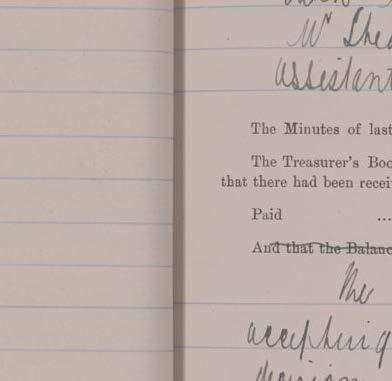 Mr
assistant
The Minutes of last
The Treasurer's Boo
that there had been recei
Paid ...
And that the Balanc
The
accepting